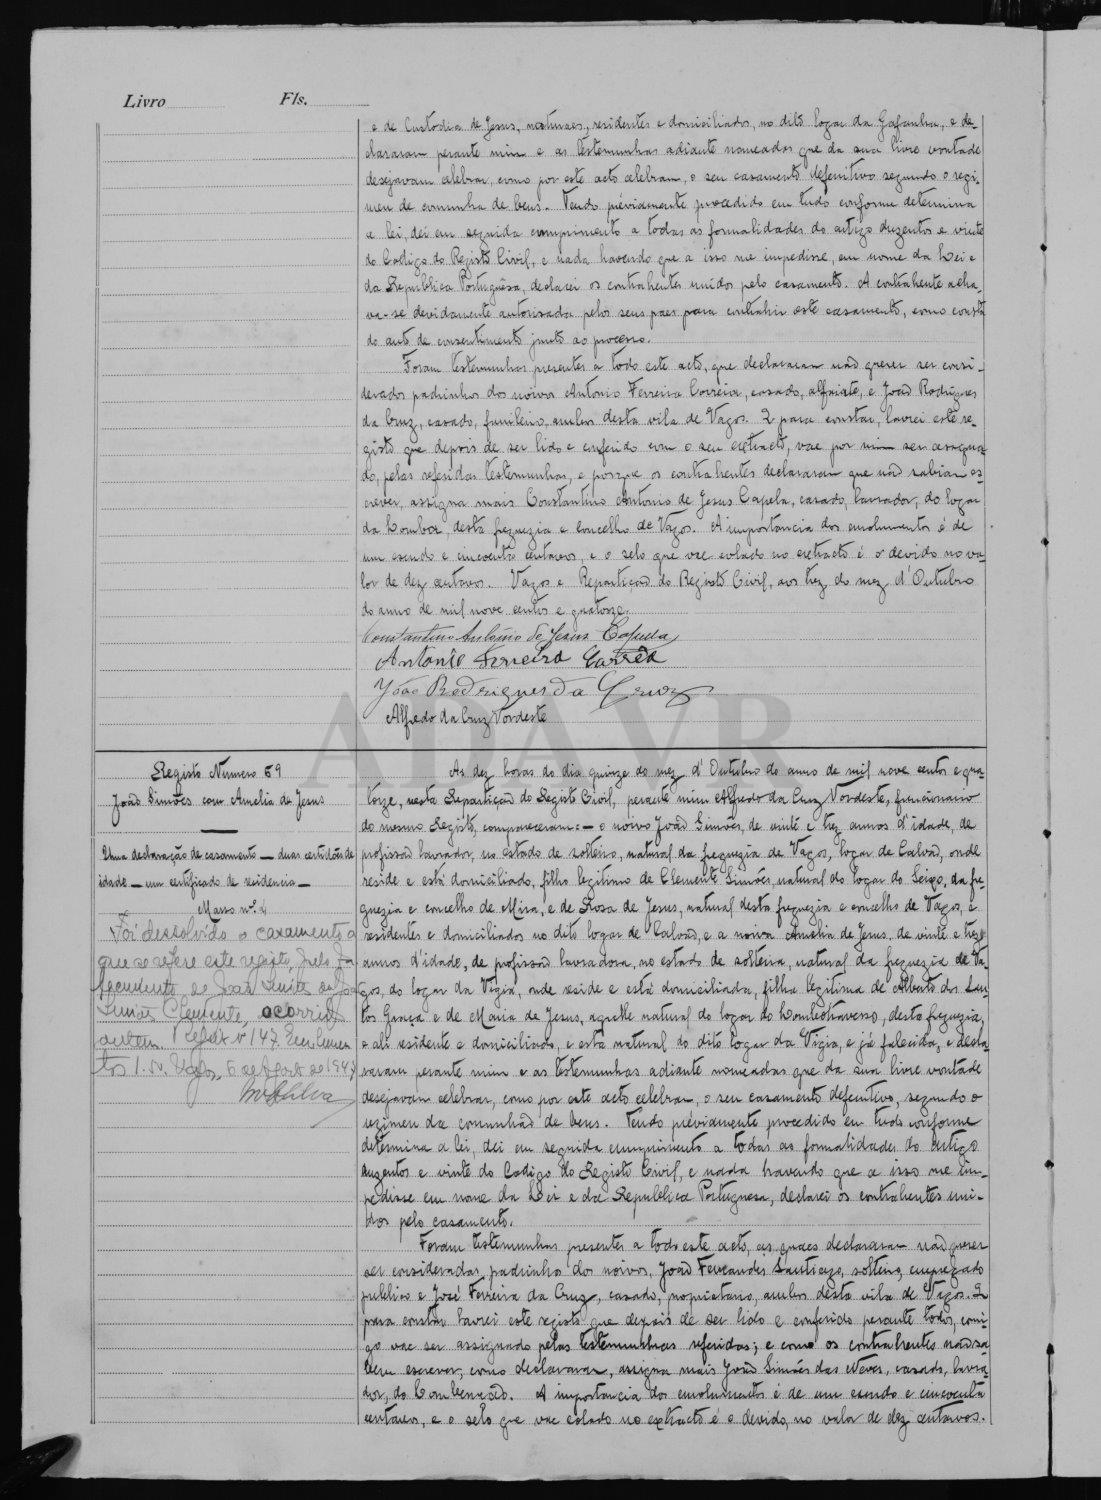 Livro Fls.
e de Custodia de Jesus, naturaes, residentes e domiciliados, no dito logar da Gafanha, e de-
clararam perante mim e as testemunhas adiante nomeadas que da sua livre vontade
desejavam celebrar, como por este acto celebram, o seu casamento definitivo segundo o regi-
men de comunhã de bens. Tendo préviamente procedido em tudo conforme determina
a lei, dei em seguida cumprimento a todas as formalidades do artigo duzentos e vinte
do Codigo do Registo Civil, e nada havendo que a isso me impedisse, em nome da Lei e
da Republica Portuguêsa, declarei os contrahentes unidos pelo casamento. A contrahente acha-
va-se devidamente autorisada pelos seus paes para contrahir este casamento, como consta
do auto de consentimento junto ao processo.
Foram testemunhas presentes a todo este acto, que declararam não querer ser consi-
derados padrinhos dos noivos Antonio Ferreira Corrêia, casado, alfaiate, e João Rodrigues
da Cruz, casado, funileiro, ambos desta vila de Vagos. E para constar, lavrei este re-
gisto que depois de ser lido e conferido com o seu extracto, vae por mim ser assigna-
do, pelas referidas testemunhas, e porque os contrahentes declararam que não sabiam es-
crever, assigna mais Constantino Antonio de Jesus Capela, casado, lavrador, do logar
da Lomba, desta freguezia e concelho de Vagos. A importancia dos emolumentos é de
um escudo e cincoenta centavos, e o selo que vae colado no extracto é o devido no va-
lor de dez centavos. Vagos e Repartição do Registo Civil, aos trez do mez d'Outubro
do anno de mil nove centos e quatorze.
Constantino Antonio de Jesus Capella
Antonio Ferreira Corrêa
João Rodrigues da Cruz
Alfredo da Cruz Nordeste
ADAVR
Registo Numero 69
João Simões com Amelia de Jesus
Uma declaração de casamento — duas certidões de
idade — um certificado de residencia —
Masso nº
Foi dissolvido o casamento a
que se refere este registo, pelo fa-
lecimento de João Simões
Simões Clemente, ocorrido
ontem. Registo nº 147
Vagos, 6 de Agosto de 194
Silva
As dez horas do dia quinze do mez d'Outubro do anno de mil nove centos e qua-
torze, nesta Repartição do Registo Civil, perante mim Alfredo da Cruz Nordeste, funcionario
do mesmo Registo, compareceram: — o noivo João Simões, de vinte e trez annos d'idade, de
profissão lavrador, no estado de solteiro, natural da freguezia de Vagos, logar de Calvão, onde
reside e está domiciliado, filho legitimo de Clemente Simões, natural do logar do Seixo, da fre-
guezia e concelho de Mira, e de Rosa de Jesus, natural desta freguezia e concelho de Vagos, e
residentes e domiciliados no dito logar de Calvão, e a noiva Amelia de Jesus, de vinte e trez
annos d'idade, de profissão lavradora, no estado de solteira, natural da freguezia de Va-
gos, do logar da Vigia, onde reside e está domiciliada, filha legitima de Alberto dos San-
tos Graça e de Maria de Jesus, aquelle natural do logar do Lombotravesso, desta freguezia,
e ali residente e domiciliado, e esta natural do dito logar da Vigia, e já falecida, e decla-
raram perante mim e as testemunhas adiante nomeadas que da sua livre vontade
desejavam celebrar, como por este acto celebram, o seu casamento definitivo, segundo o
regimen da comunhão de bens. Tendo préviamente procedido em tudo conforme
determina a lei, dei em seguida cumprimento a todas as formalidades do artigo
duzentos e vinte do Codigo do Registo Civil, e nada havendo que a isso me im-
pedisse em nome da Lei e da Republica Portuguesa, declarei os contrahentes uni-
dos pelo casamento.
Foram testemunhas presentes a todo este acto, as quaes declararam não querer
ser consideradas padrinhos dos noivos, João Fernandes Santiago, solteiro, empregado
publico e José Ferreira da Cruz, casado, proprietario, ambos desta vila de Vagos. E
para constar lavrei este registo que depois de ser lido e conferido perante todos, comi-
go vae ser assignado pelas testemunhas referidas; e como os contrahentes não sa-
bem escrever, como declararam, assigna mais João Simões das Neves, casado, lavra-
dor, do A importancia dos emolumentos é de um escudo e cincoenta
centavos, e o selo que vae colado no extracto é o devido, no valor de dez centavos.